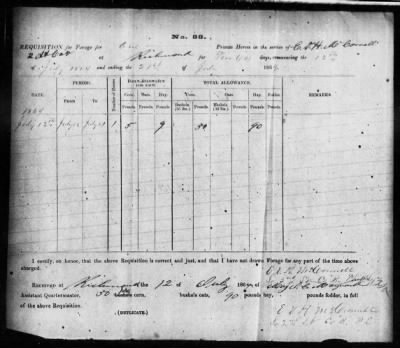 No. 33.
REQUISITION for Forage for One Private Horses in the service of
at Richmond for Ten days, commencing the 12th
and ending the 21st of July 1864.
DATE. PERIOD. Number of Horses DAILY ALLOWANCE FOR EACH. TOTAL ALLOWANCE. REMARKS.
FROM TO Corn. Oats. Hay. Corn. Oats. Hay. Fodder.
Pounds. Pounds. Pounds. Bushels (56 lbs.) Pounds. Bushels (32 lbs.) Pounds. Pounds. Pounds.
1864
July 12th July 12 July 21 1 5 9 50 90
I certify, on honor, that the above Requisition is correct and just, and that I have not drawn Forage for any part of the time above
charged.
RECEIVED at Richmond the 12 of July 1864, of
Assistant Quartermaster, 50 bushels corn, bushels oats, 90 pounds hay, pounds fodder, in full
of the above Requisition.
(DUPLICATE.)